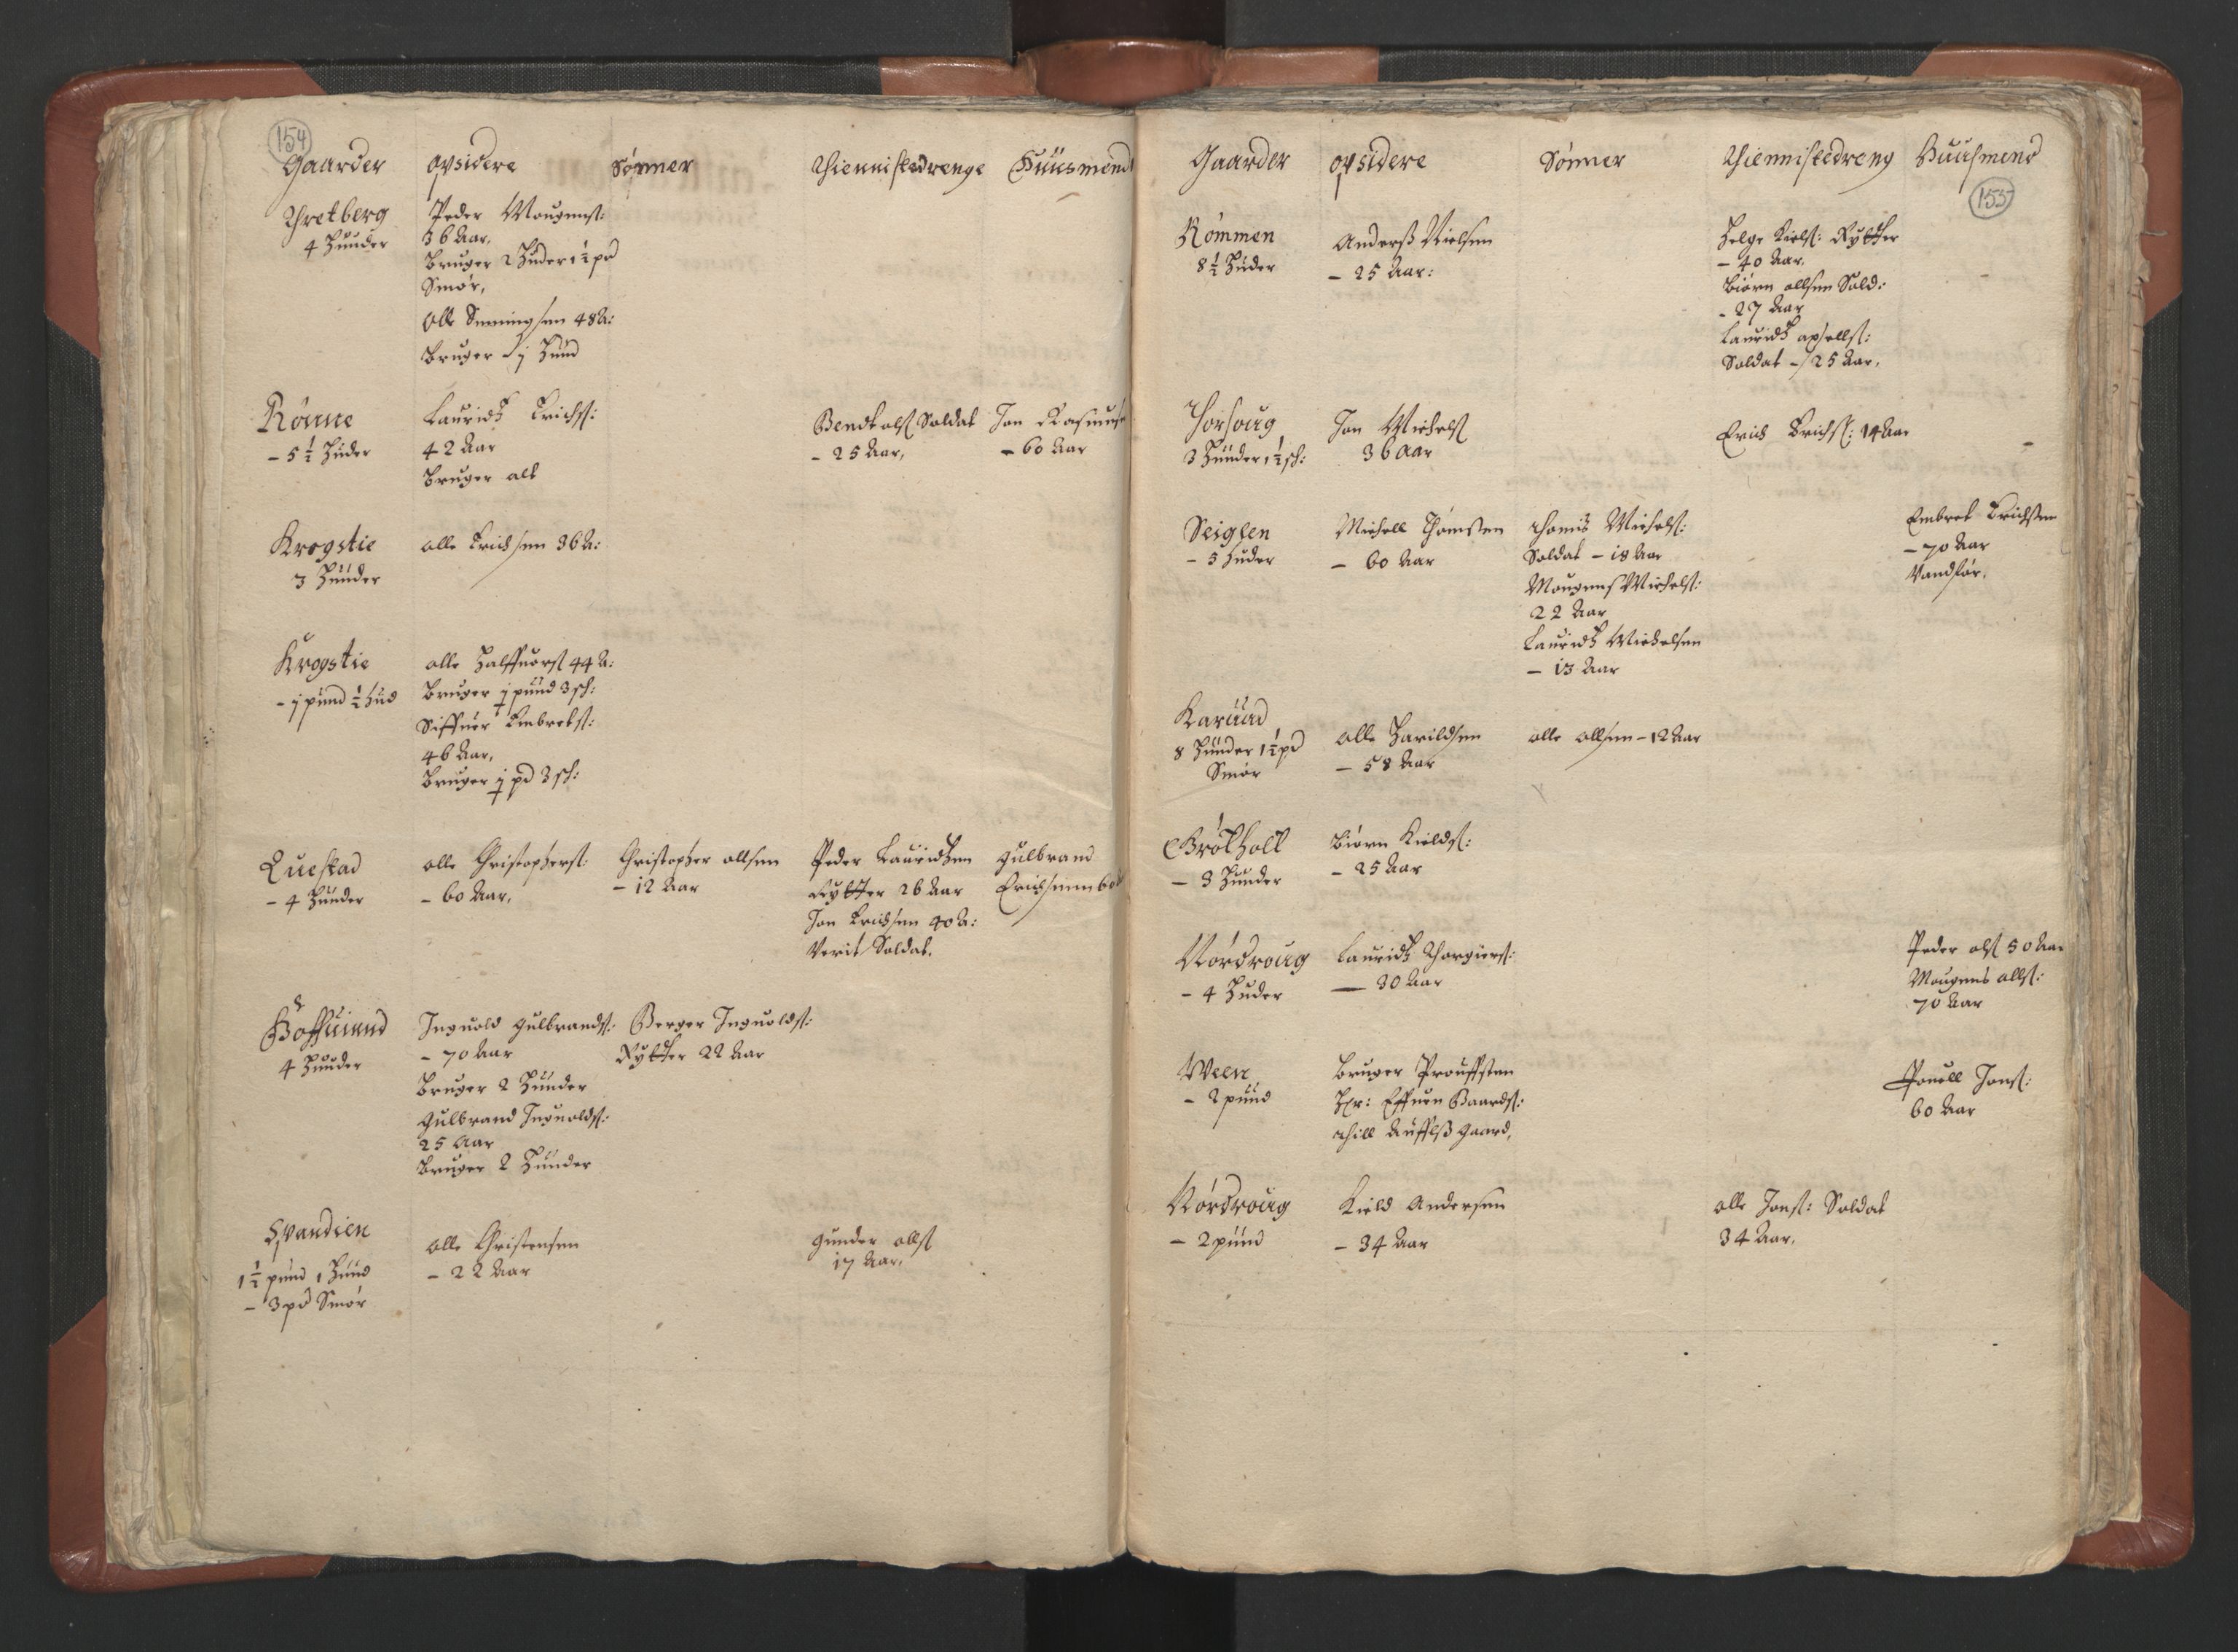 154
Gaarder opsidere Sønner Thiennistedrenge Huusmend
Thretberg
4 Hunder
Peder Mougens:
36 Aar,
Bruger 2 Huder 1½ pd
Smør,
Olle Simmingsen 48 A:
Bruger j Hund
Rønne
- 5½ Huder
Lauridtz Erichs:
42 Aar
Bruger alt
Bendt ols Soldat
- 25 Aar,
Jon Rasmus
- 60 Aar
Krogstie
3 Hunder
olle Erichsen 36 A:
Krogstie
- j pund ½ Hud
olle Halffuors 44 A:
Bruger j pund 3 sk:
Siffuer Embrets:
46 Aar,
Bruger j pd 3 sk:
Questad
- 4 Hunder
olle Christophers:
- 60 Aar,
Christopher ollsen
- 12 Aar
Peder Lauridtzen
Rytter 26 Aar
Jon Erichsen 40 A:
Verit Soldat.
gulbrand
Erichsenn 60
Boffuind
4 Hunder
Inguold gulbrands:
- 70 Aar
Bruger 2 Hunder
gulbrand Inguolds:
25 Aar
Bruger 2 Hunder
Berger Inguolds:
Rytter 22 Aar
Spandien
1½ pund 1 Hund
- 3 pd Smør
olle Christensen
- 22 Aar
gunder olls
17 Aar,
Gaarder opsidere Sønner Thiennistedreng Huusmend
155
Rømmen
8½ Huder
Anderss Nielsen
- 25 Aar:
Helge Niels: Rytter
- 40 Aar,
Biørn ollsen Sold:
- 27 Aar
Lauridtz axells:
Soldat - 25 Aar,
Thorsoug
3 Hunder 1½ sk:
Jon Michels
36 Aar
Erich Erichs: 14 Aar
Seiglen
- 5 Huder
Michell Thomsen
- 60 Aar
Thomis Michels:
Soldat - 18 Aar
Mougens Michels:
22 Aar
Lauridtz Michelsen
- 13 Aar
Embret Erichsen
- 70 Aar
Vandfør.
Karuud
8 Hunder 1½ pd
Smør
olle Harildsen
- 58 Aar
olle ollsen - 12 Aar
Brøtholt
- 3 Hunder
Biørn Kields:
- 25 Aar
Nordroug
- 4 Huder
Lauridtz Thorgiers:
- 30 Aar
Peder ols 50 Aar
Mougens olls:
70 Aar
Ween
- 2 pund
Bruger Prouffsten
Her: Effuen Baards:
thill Auffls gaard,
Pouell Jons:
60 Aar
Nordroug
- 2 pund
Kield Andersen
- 34 Aar
olle Jons: Soldat
34 Aar,